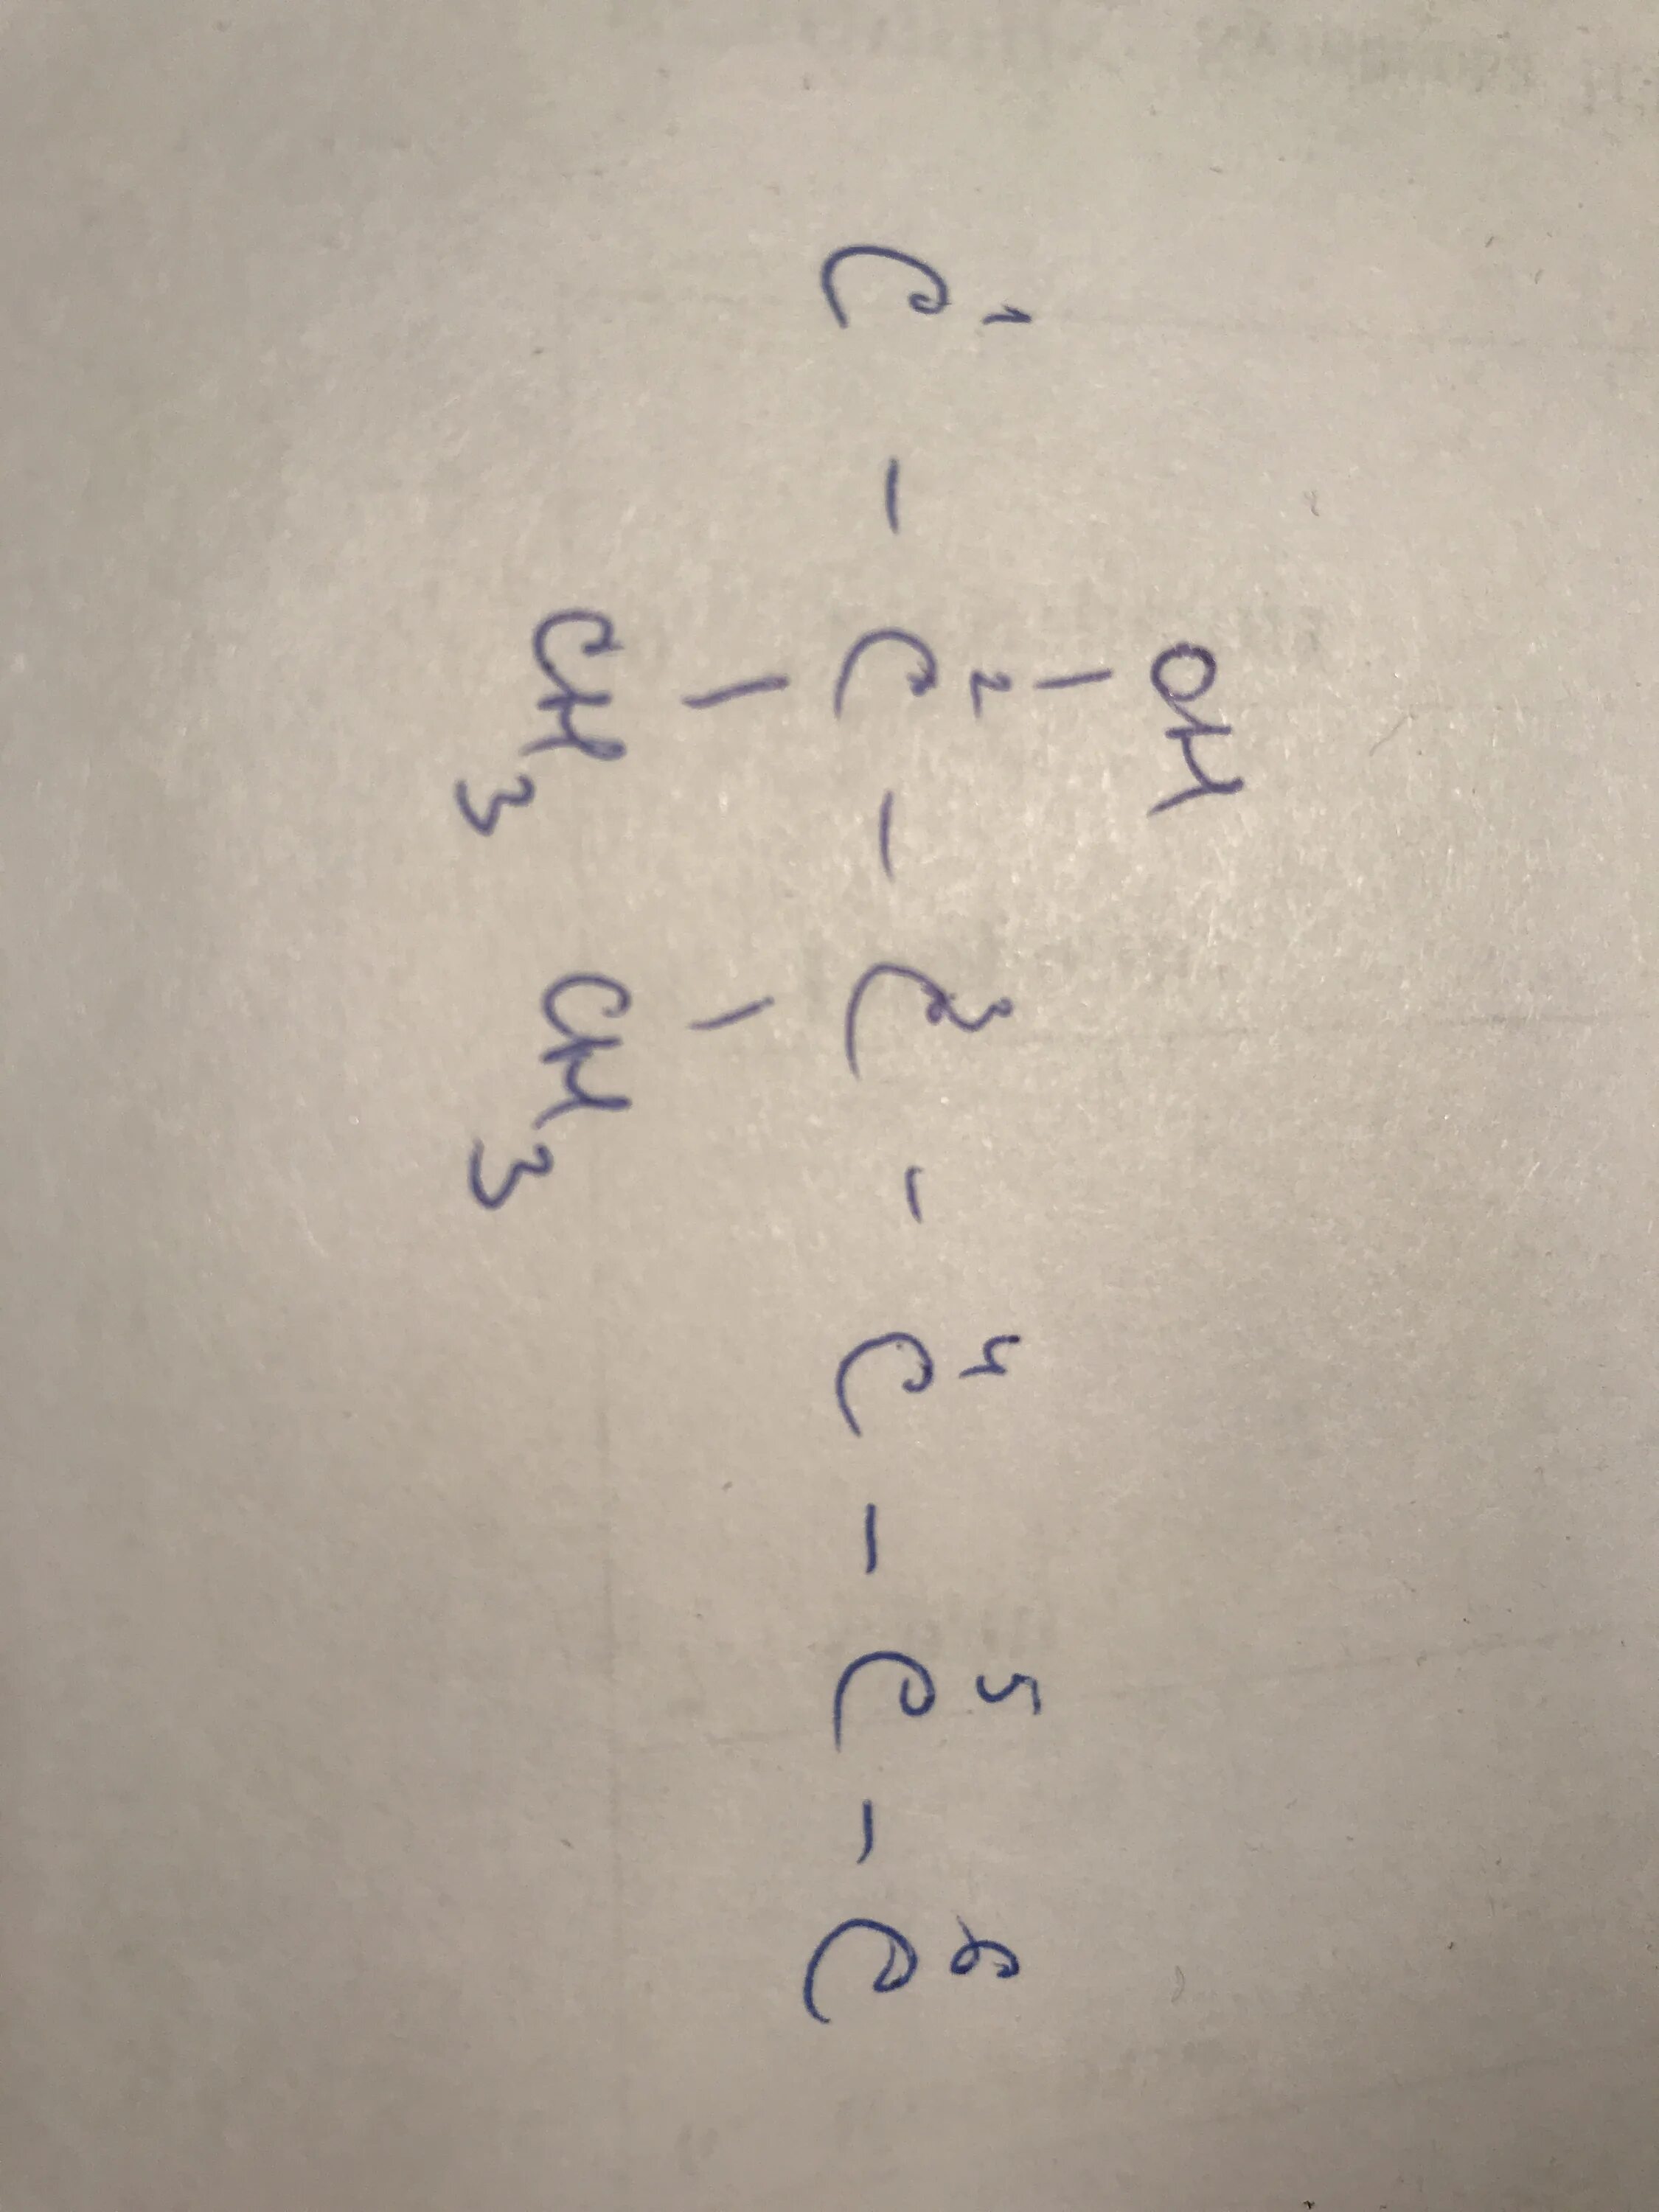 OH
|
C¹ - C² - C³ - C⁴ - C⁵ - C⁶
| |
CH₃ CH₃